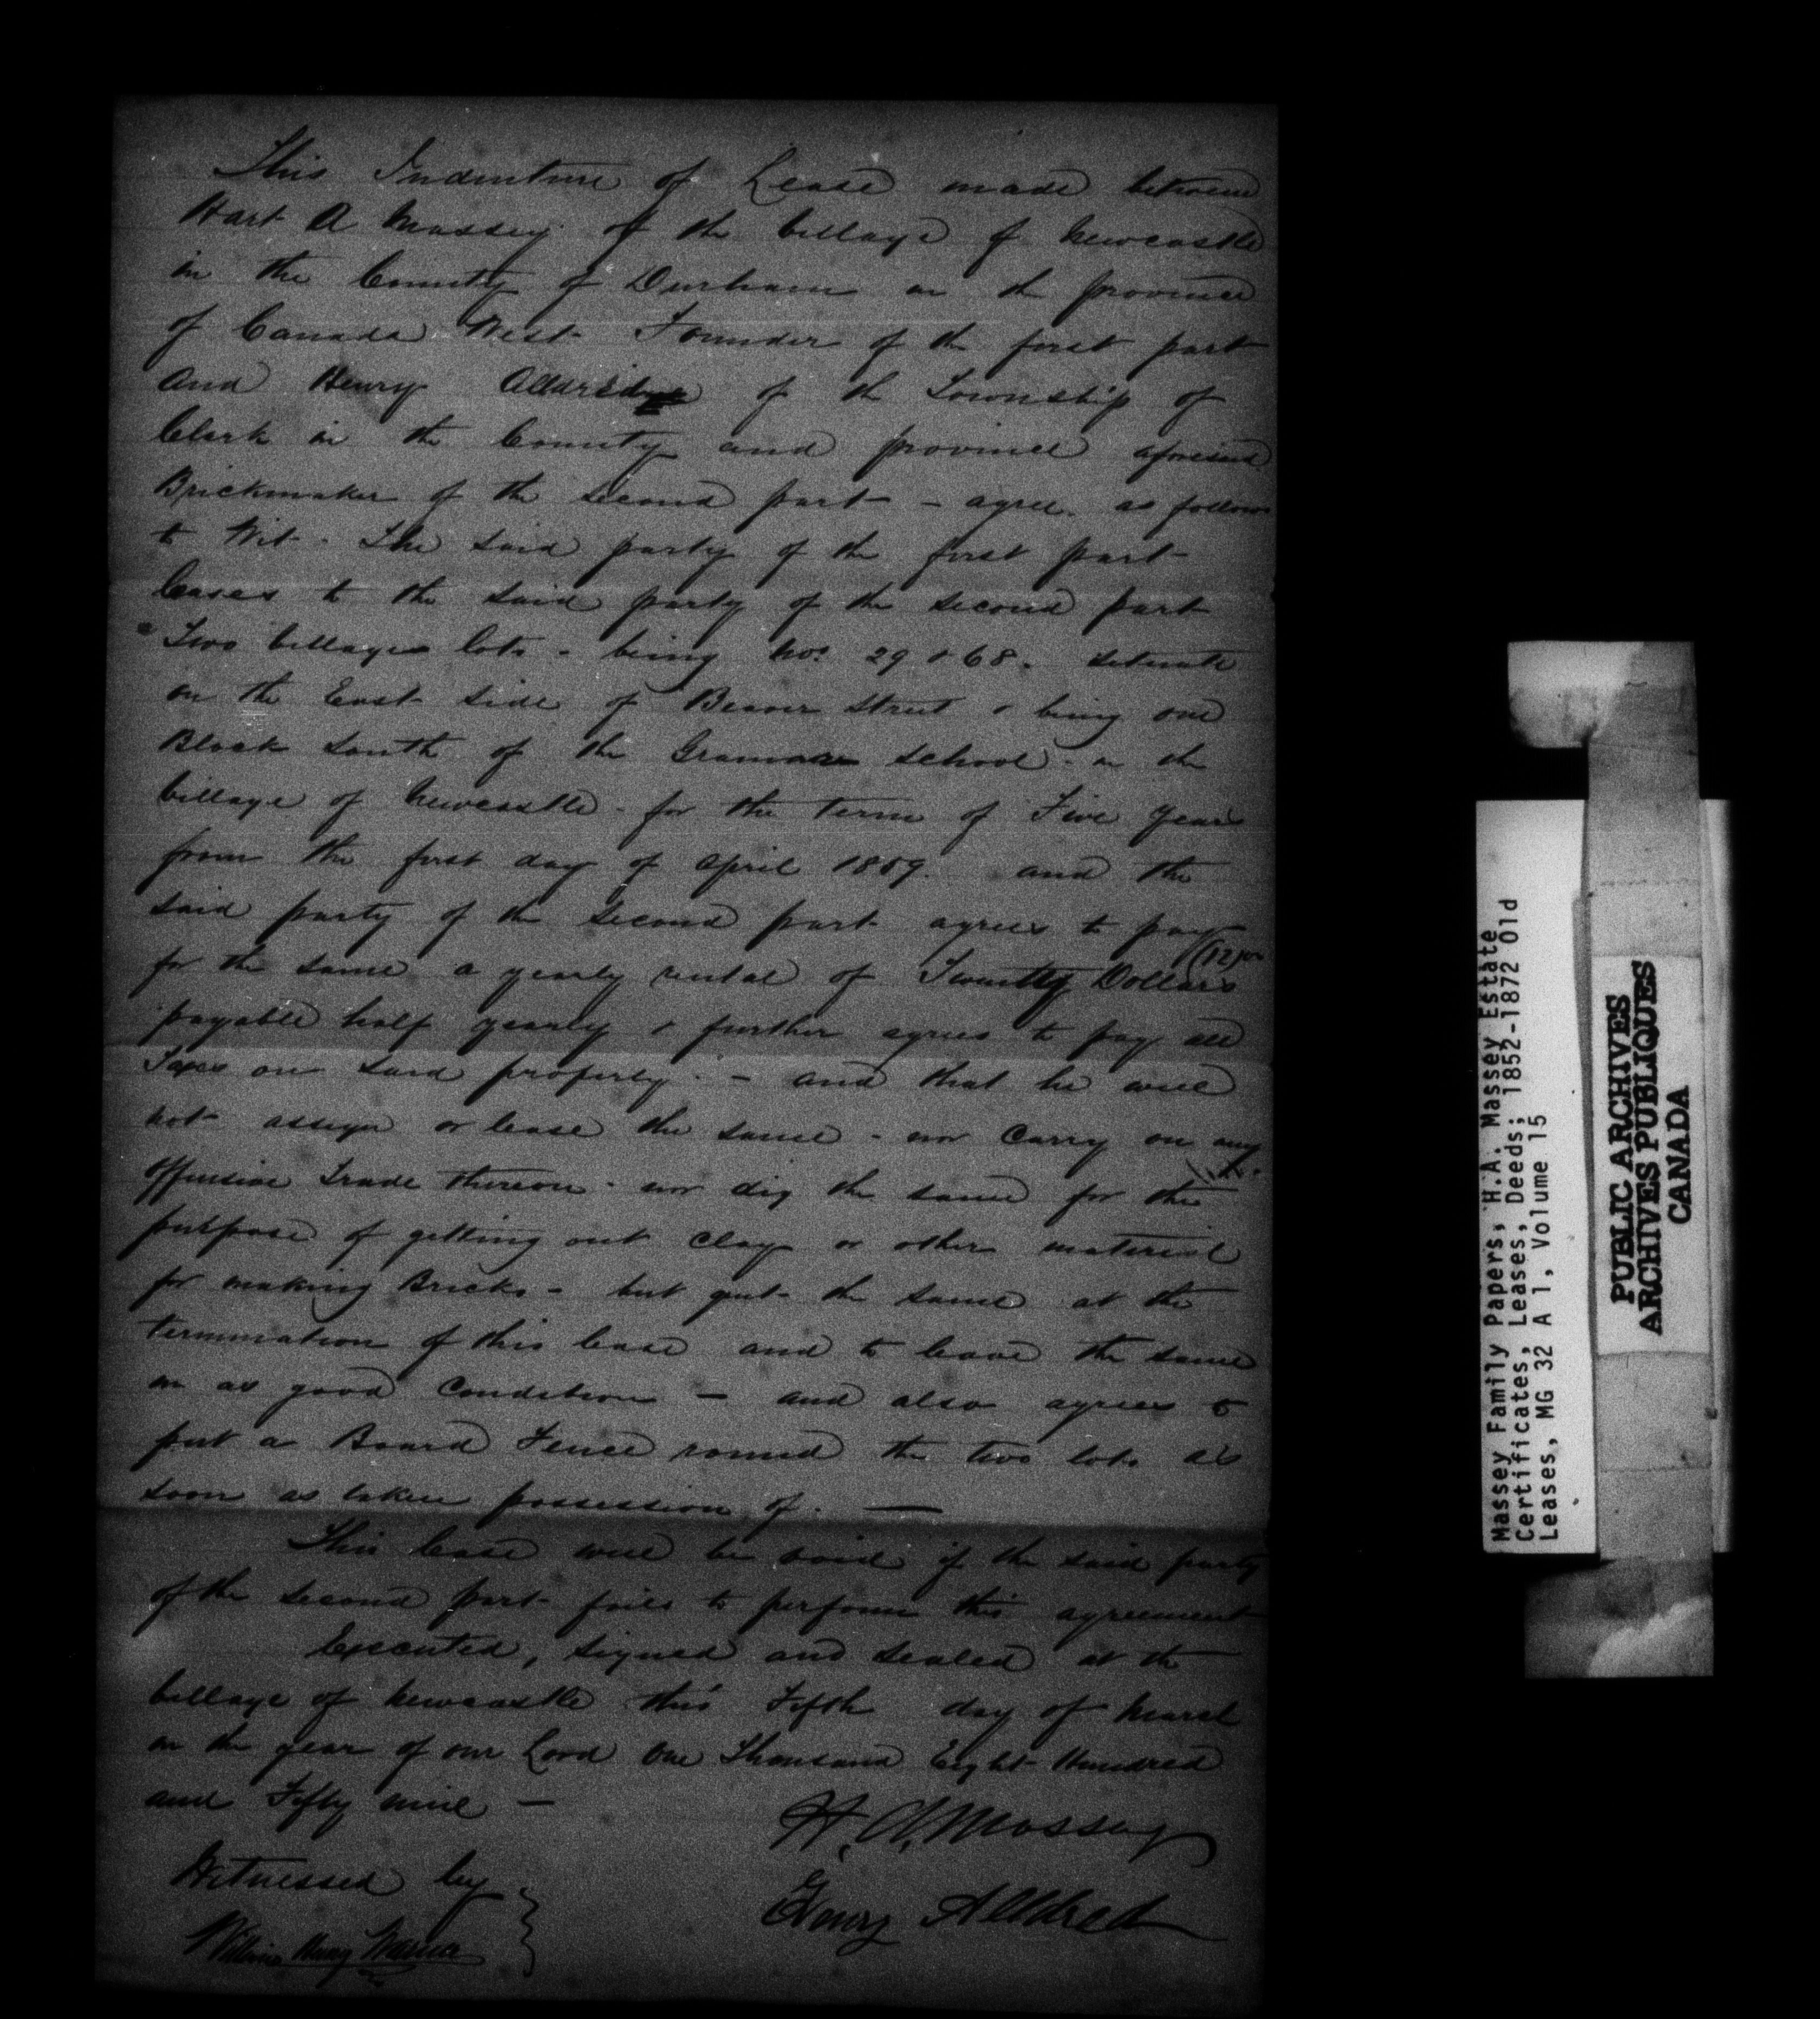 This Indenture of Lease made between
Hart A Massey of the village of Newcastle
in the County of Durham in the province
of Canada West Founder of the first part
And Henry Alldred of the Township of
Clark in the County and province aforesaid
Brickmaker of the second part – agree as follows
to Wit. The said party of the first part
leases to the said party of the second part
Two village lots – being Nos 29 & 68. situate
on the East side of Beaver Street & being one
Block South of the Grammar School in the
village of Newcastle – for the term of Five years
from the first day of April 1859. and the
said party of the second part agrees to pay
for the same a yearly rental of Dollars
payable half yearly & further agrees to pay all
Taxes on said property. – and that he will
not assign or lease the same – nor carry on any
offensive Trade thereon – nor dig the same for the
purpose of getting out clay or other material
for making Bricks – but quit the same at the
termination of this lease and to leave the same
in as good condition – and also agrees to
put a Board Fence round the two lots as
soon as taken possession of. —
This lease will be void if the said party
of the second part fails to perform this agreement
Executed, signed and sealed at the
village of Newcastle this Fifth day of March
in the year of our Lord One Thousand Eight Hundred
and Fifty nine –
H. A. Massey
Witnessed by
Henry Alldred
William Henry
Massey Family Papers, H.A. Massey Estate
Certificates, Leases, Deeds; 1852-1872 Old
Leases, MG 32 A 1, Volume 15
PUBLIC ARCHIVES
ARCHIVES PUBLIQUES
CANADA